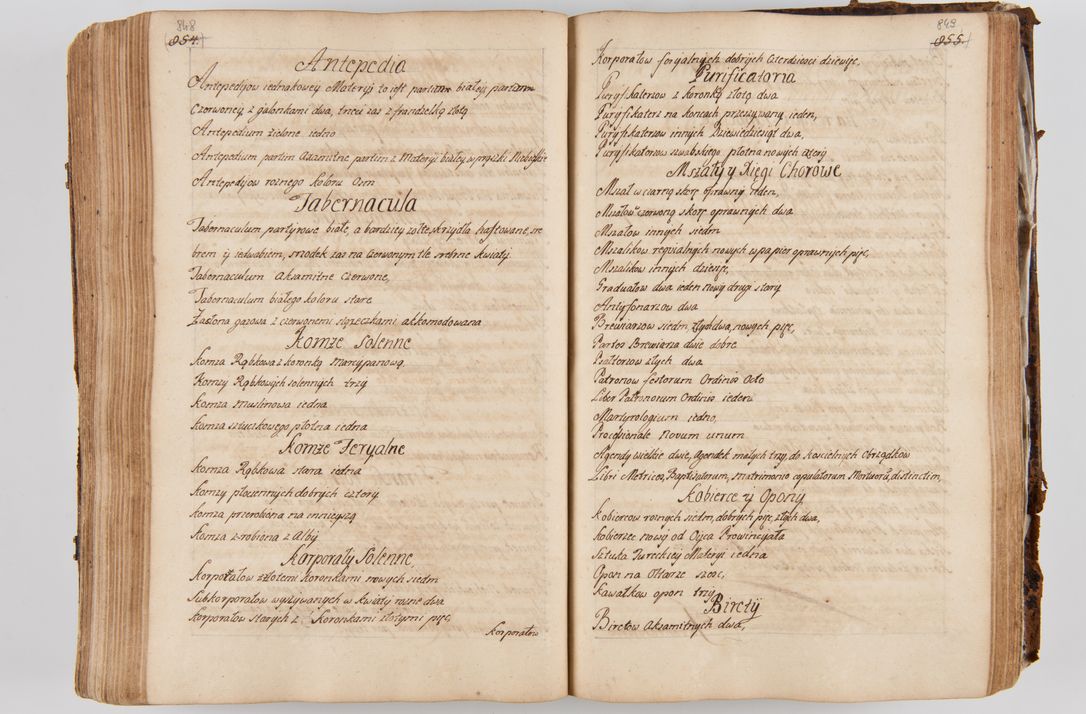 848
854.
Antepedia
Antepedijow iednakowey Materyi to iest partim białey partim
Czerwoney z galonkami dwa, trzeci zas z frandzelką złotą
Antepedium zielone iedno
Antepedium partim Axamitne partim z Materyi białey w prążki Niebieskie
Antepedijow roznego koloru Osm
Tabernacula
Tabernaculum partyrowe białe, a bardziey zołte, skrzydła haftowane, sre
brem ij iedwabiem, srzodek zas na czerwonym tle srebrne kwiaty
Tabernaculum Aksamitne czerwone,
Tabernaculum białego koloru stare
Zasłona gazowa z czerwonemi stązeczkami akkomodowana
Komze Solenne
Komza Rąbkowa z koronką marcypanową
Komzy Rąbkowych solennych trzy
Komza muslinowa iedna
Komza szwickowego płotna iedna
Komze Feryalne
Komza Rąbkowa stara iedna
Komzy płociennych dobrych cztery
Komza przerobiona na mnieyszą
Komza zrobiona z Alby
Korporały Solenne
Korporałow złotemi koronkami nowych siedm
Subkorporałow wyszywanych w kwiaty rozne dwa
Korporałow starych z koronkami złotymi pięc,
Korporałow
849
855.
Korporałow feryalnych dobrych czterdziesci dziewięc,
Purificatoria
Puryfikaterzow z koronką złotą dwa
Puryfikaterz na koncach przeszywany ieden,
Puryfikaterzow innych Dziewiedziesiąt dwa,
Puryfikaterzow szwabskiego płotna nowych cztery
Mszały y Xięgi Chorowe
Mszał w czarną skorę oprawny ieden,
Mszałow w czerwoną skorę oprawnych dwa
Mszałow innych siedm
Mszalikow requialnych nowych w papier oprawnych pięc,
Mszalikow innych dziewięc,
Graduałow dwa ieden nowy drugi stary
Antyfonarzow dwa
Brewiarzow siedm, złych dwa, nowych pięc,
Partes Brewiarza dwie dobre
Psałterzow złych dwa
Patronow festorum Ordinis Octo
Liber Patronorum Ordinis ieden
Martyrologium iedno,
Procesionale novum unum
Agendy wielkie dwie, agendek małych trzy do Koscielnych Obrządkow
Libri Metrices, Baptisatorum, matrimonio copulatorum Mortuorũ, distinctim,
Kobierce y Opony
Kobiercow roznych siedm, dobrych pięc, złych dwa,
Kobierzec nowy od Oyca Prowincyała
Sztuka Tureckiey Materyi iedna
Opon na Ołtarze szesc,
Kawałkow opon trzy
Birety
Biretow Aksamitnych dwa,